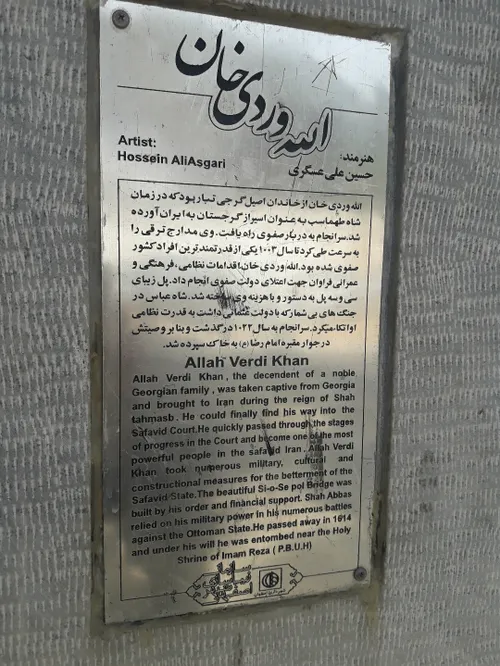 الله وردی خان
Artist:
Hossein AliAsgari
هنرمند:
حسین علی عسگری
الله وردی خان از خاندان اصیل گرجی تبار بود که در زمان
شاه طهماسب به عنوان اسیر از گرجستان به ایران آورده
شد. سرانجام به دربار صفوی راه یافت. وی مدارج ترقی را
به سرعت طی کرد تا سال ۱۰۰۳ یکی از قدرتمندترین افراد کشور
صفوی شده بود. الله وردی خان، اقدامات نظامی، فرهنگی و
عمرانی فراوان جهت اعتلای دولت صفوی انجام داد. پل زیبای
سی و سه پل به دستور و با هزینه وی ساخته شد. شاه عباس در
جنگ های بی شمار که با دولت عثمانی داشت به قدرت نظامی
او اتکا میکرد. سرانجام به سال ۱۰۲۲ در گذشت و بنا بر وصیتش
در جوار مقبره امام رضا (ع) به خاک سپرده شد.
Allah Verdi Khan
Allah Verdi Khan , the decendent of a noble
Georgian family , was taken captive from Georgia
and brought to Iran during the reign of Shah
tahmasb . He could finally find his way into the
Safavid Court.He quickly passed through the stages
of progress in the Court and become one of the most
powerful people in the safavid Iran . Allah Verdi
Khan took numerous military, cultural and
constructional measures for the betterment of the
Safavid State.The beautiful Si-o-Se pol Bridge was
built by his order and financial support. Shah Abbas
relied on his military power in his numerous battles
against the Ottoman State.He passed away in 1614
and under his will he was entombed near the Holy
Shrine of Imam Reza ( P.B.U.H)